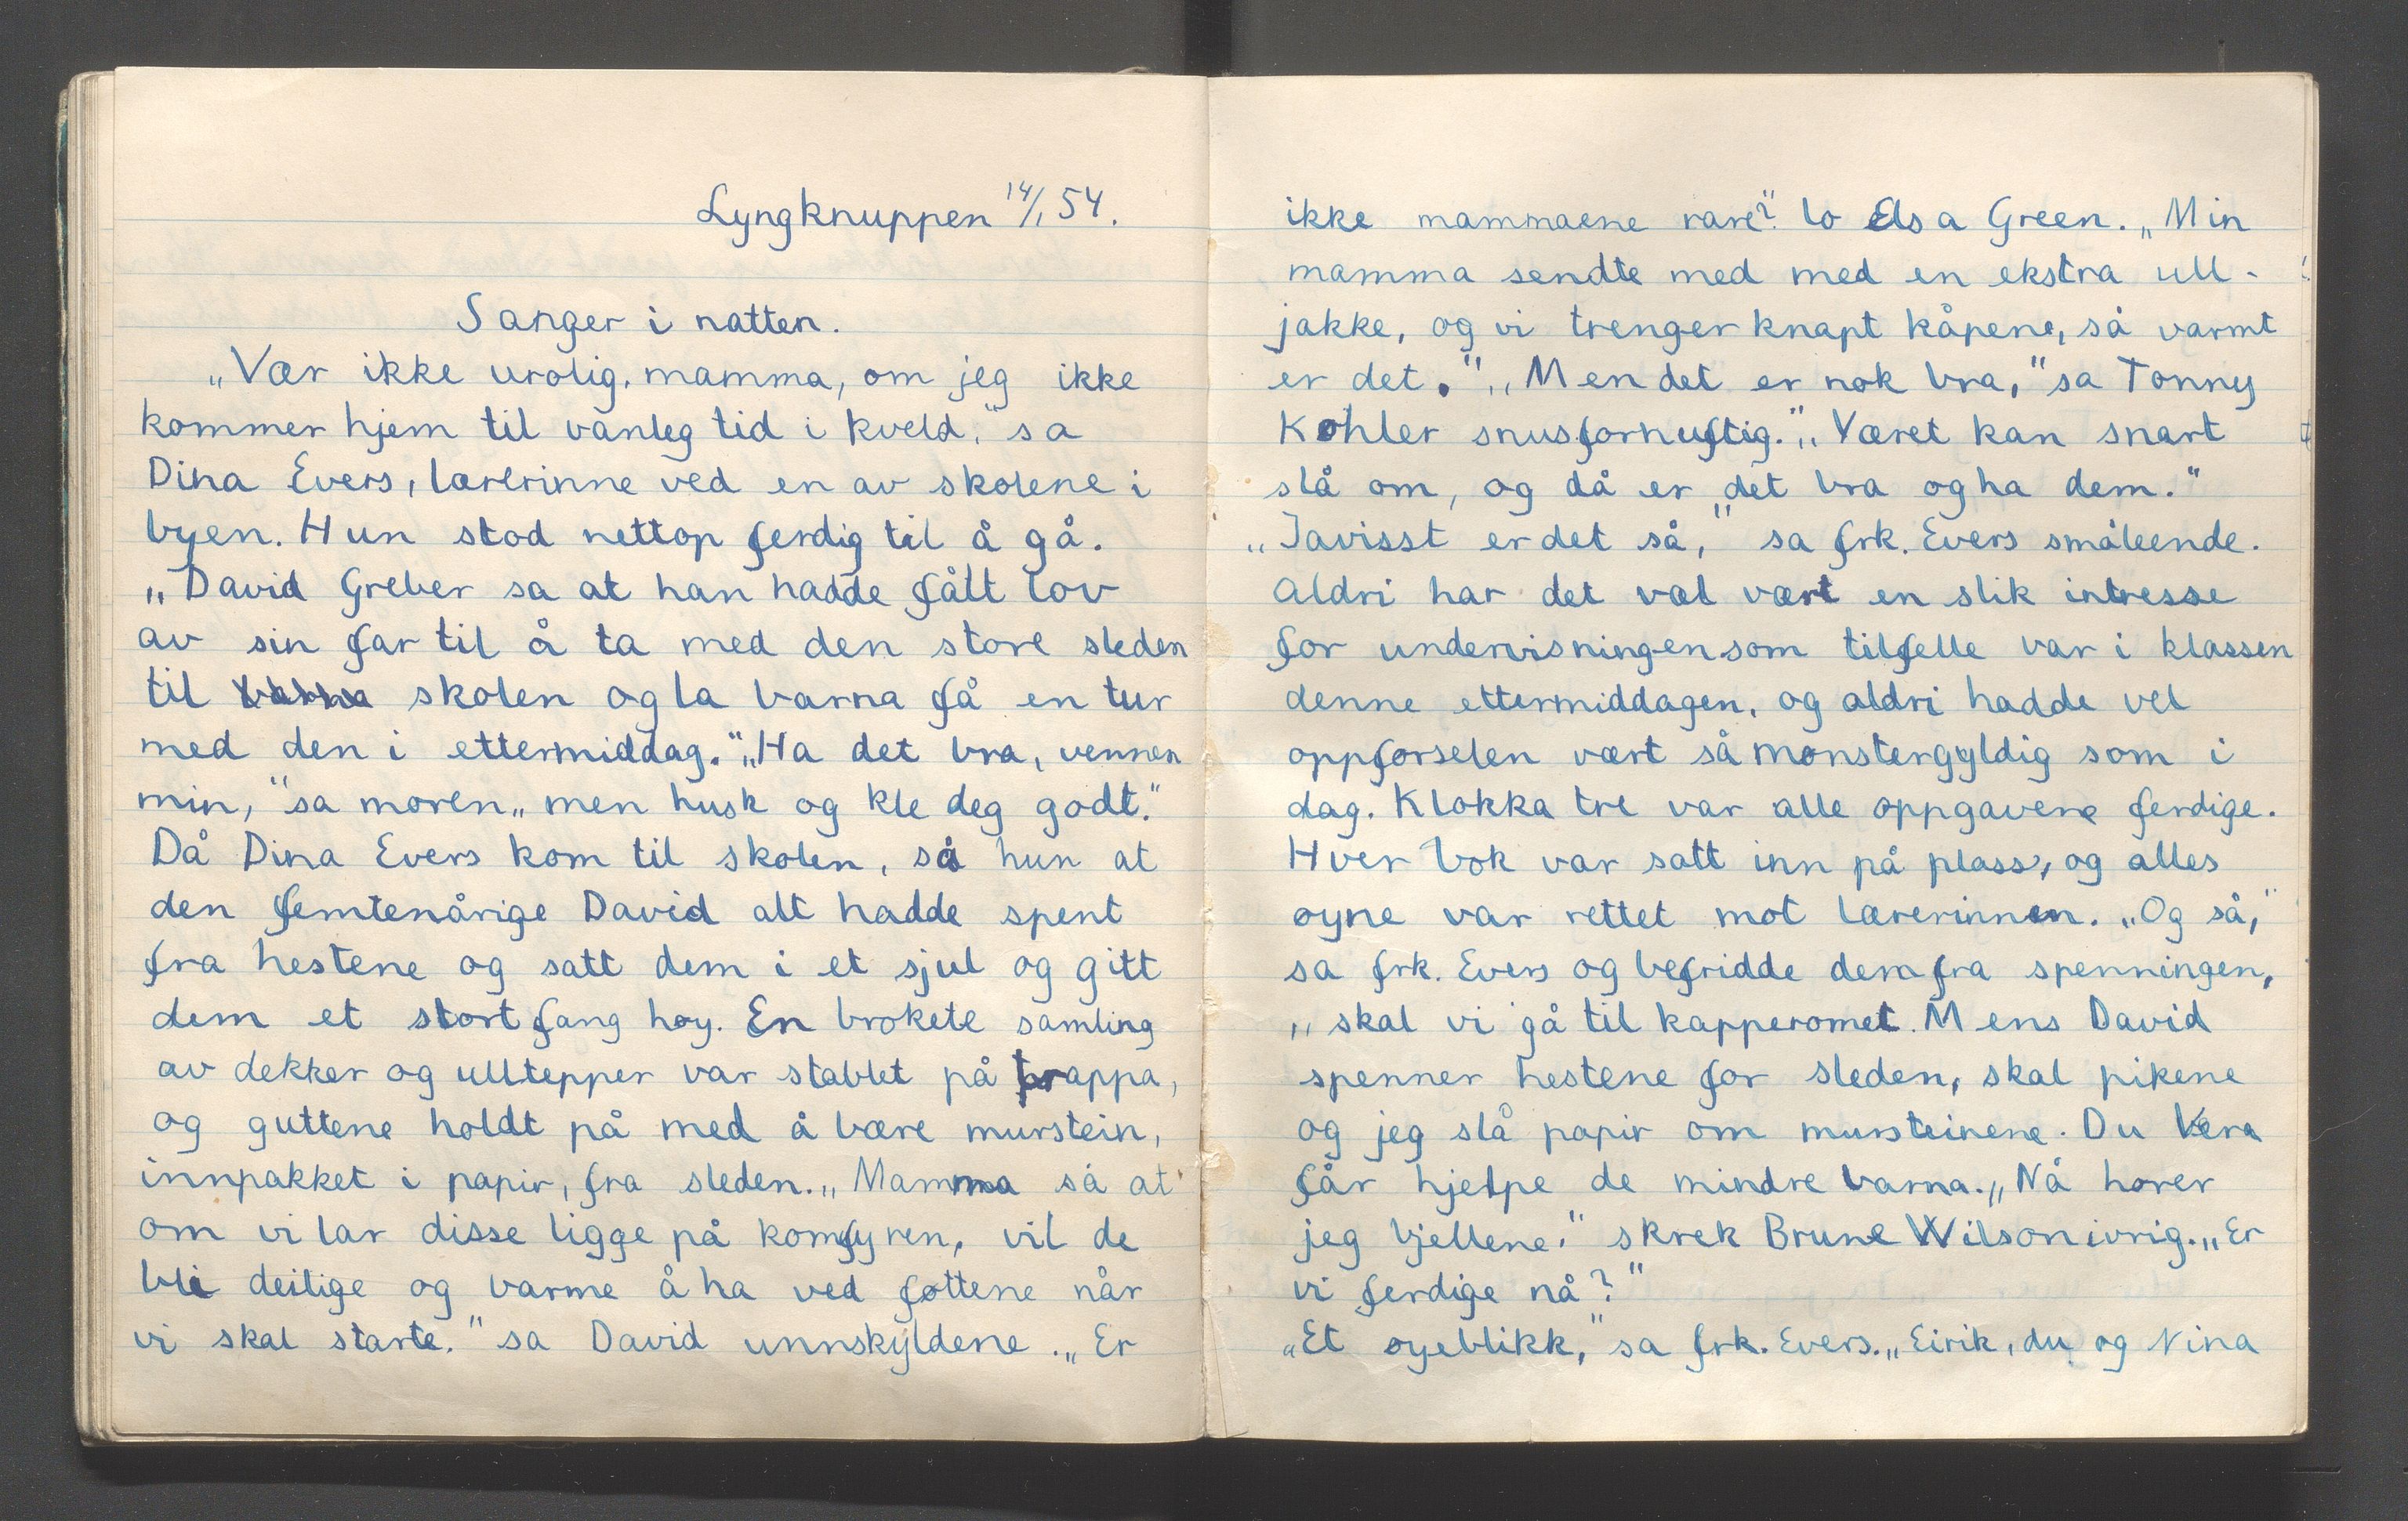 Lyngknuppen 14/1 54.
Sanger i natten.
„Vær ikke urolig, mamma, om jeg ikke
kommer hjem til vanleg tid i kveld," sa
Dina Evers, lærerinne ved en av skolene i
byen. Hun stod nettop ferdig til å gå.
„David Greber sa at han hadde fått lov
av sin far til å ta med den store sleden
til skolen og la barna få en tur
med den i ettermiddag." „Ha det bra, vennen
min," sa moren „men husk og kle deg godt."
Då Dina Evers kom til skolen, så hun at
den femtenårige David alt hadde spent
fra hestene og satt dem i et sjul og gitt
dem et stort fang høy. En brokete samling
av dekker og ulltepper var stablet på trappa,
og guttene holdt på med å bære murstein,
innpakket i papir, fra sleden. „Mamma sa at
om vi lar disse ligge på komfyren, vil de
bli deilige og varme å ha ved føttene når
vi skal starte." sa David unnskyldene. „Er
ikke mammaene rare?" lo Elsa Green. „Min
mamma sendte med med en ekstra ull-
jakke, og vi trenger knapt kåpene, så varmt
er det." „Men det er nok bra," sa Tonny
Køhler snusfornuftig. „Været kan snart
slå om, og då er det bra og ha dem."
„Javisst er det så," sa frk. Evers småleende.
Aldri har det væl vært en slik intresse
for undervisningen som tilfelle var i klassen
denne ettermiddagen, og aldri hadde vel
oppførselen vært så mønstergyldig som i
dag. Klokka tre var alle oppgavene ferdige.
Hver bok var satt inn på plass, og alles
øyne var rettet mot lærerinnen. „Og så,"
sa frk. Evers og befridde dem fra spenningen,
„skal vi gå til kapperomet. Mens David
spenner hestene for sleden, skal pikene
og jeg slå papir om mursteinene. Du Vera
får hjelpe de mindre barna. „Nå hører
jeg bjellene." skrek Brune Wilson ivrig. „Er
vi ferdige nå?"
„Et øyeblikk," sa frk. Evers. „Eirik, du og Nina